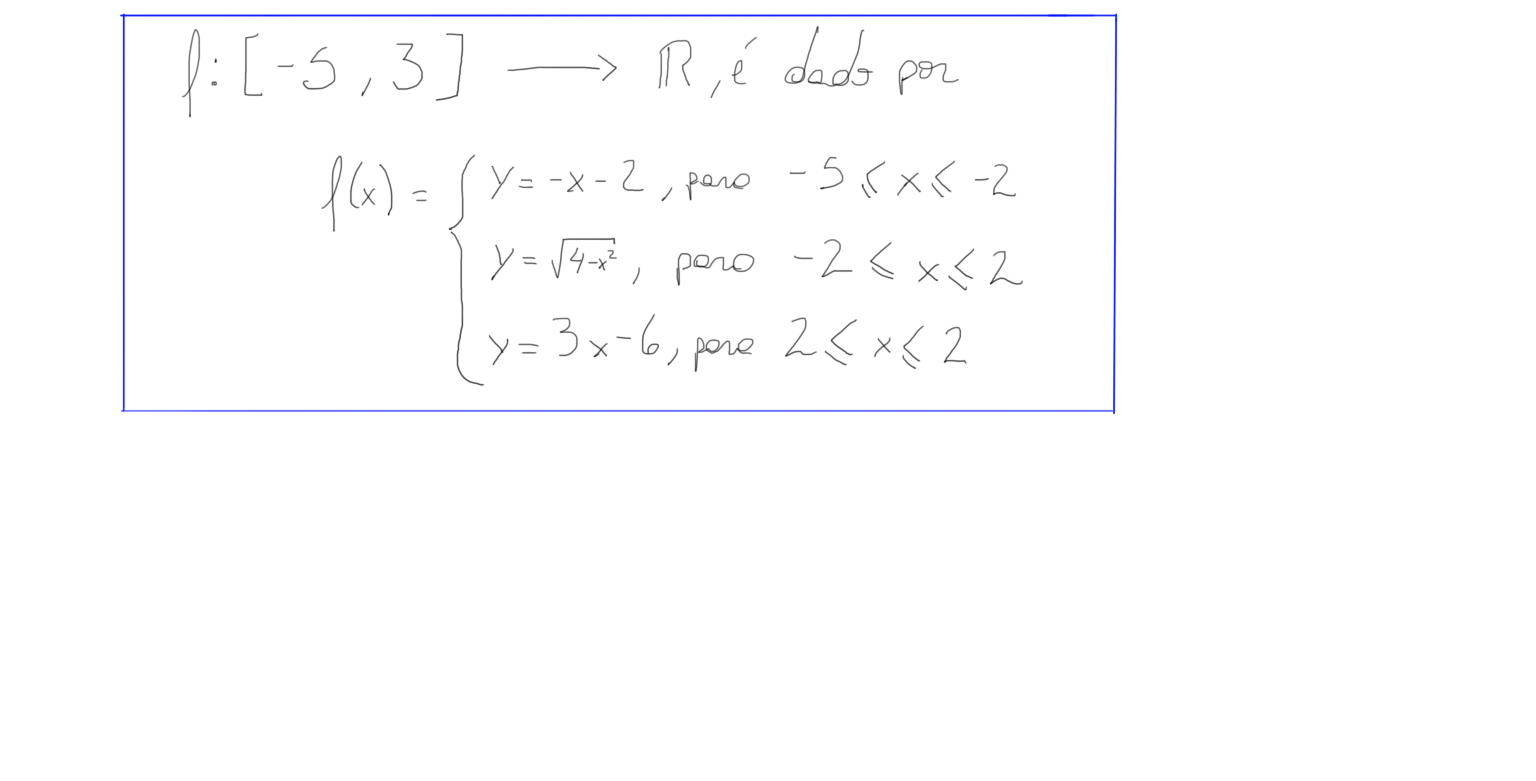 f: [-5, 3] ⟶ ℝ, é dado por
f(x) = { y = -x - 2, para -5 ⩽ x ⩽ -2
y = √(4-x²), para -2 ⩽ x ⩽ 2
y = 3x - 6, para 2 ⩽ x ⩽ 2